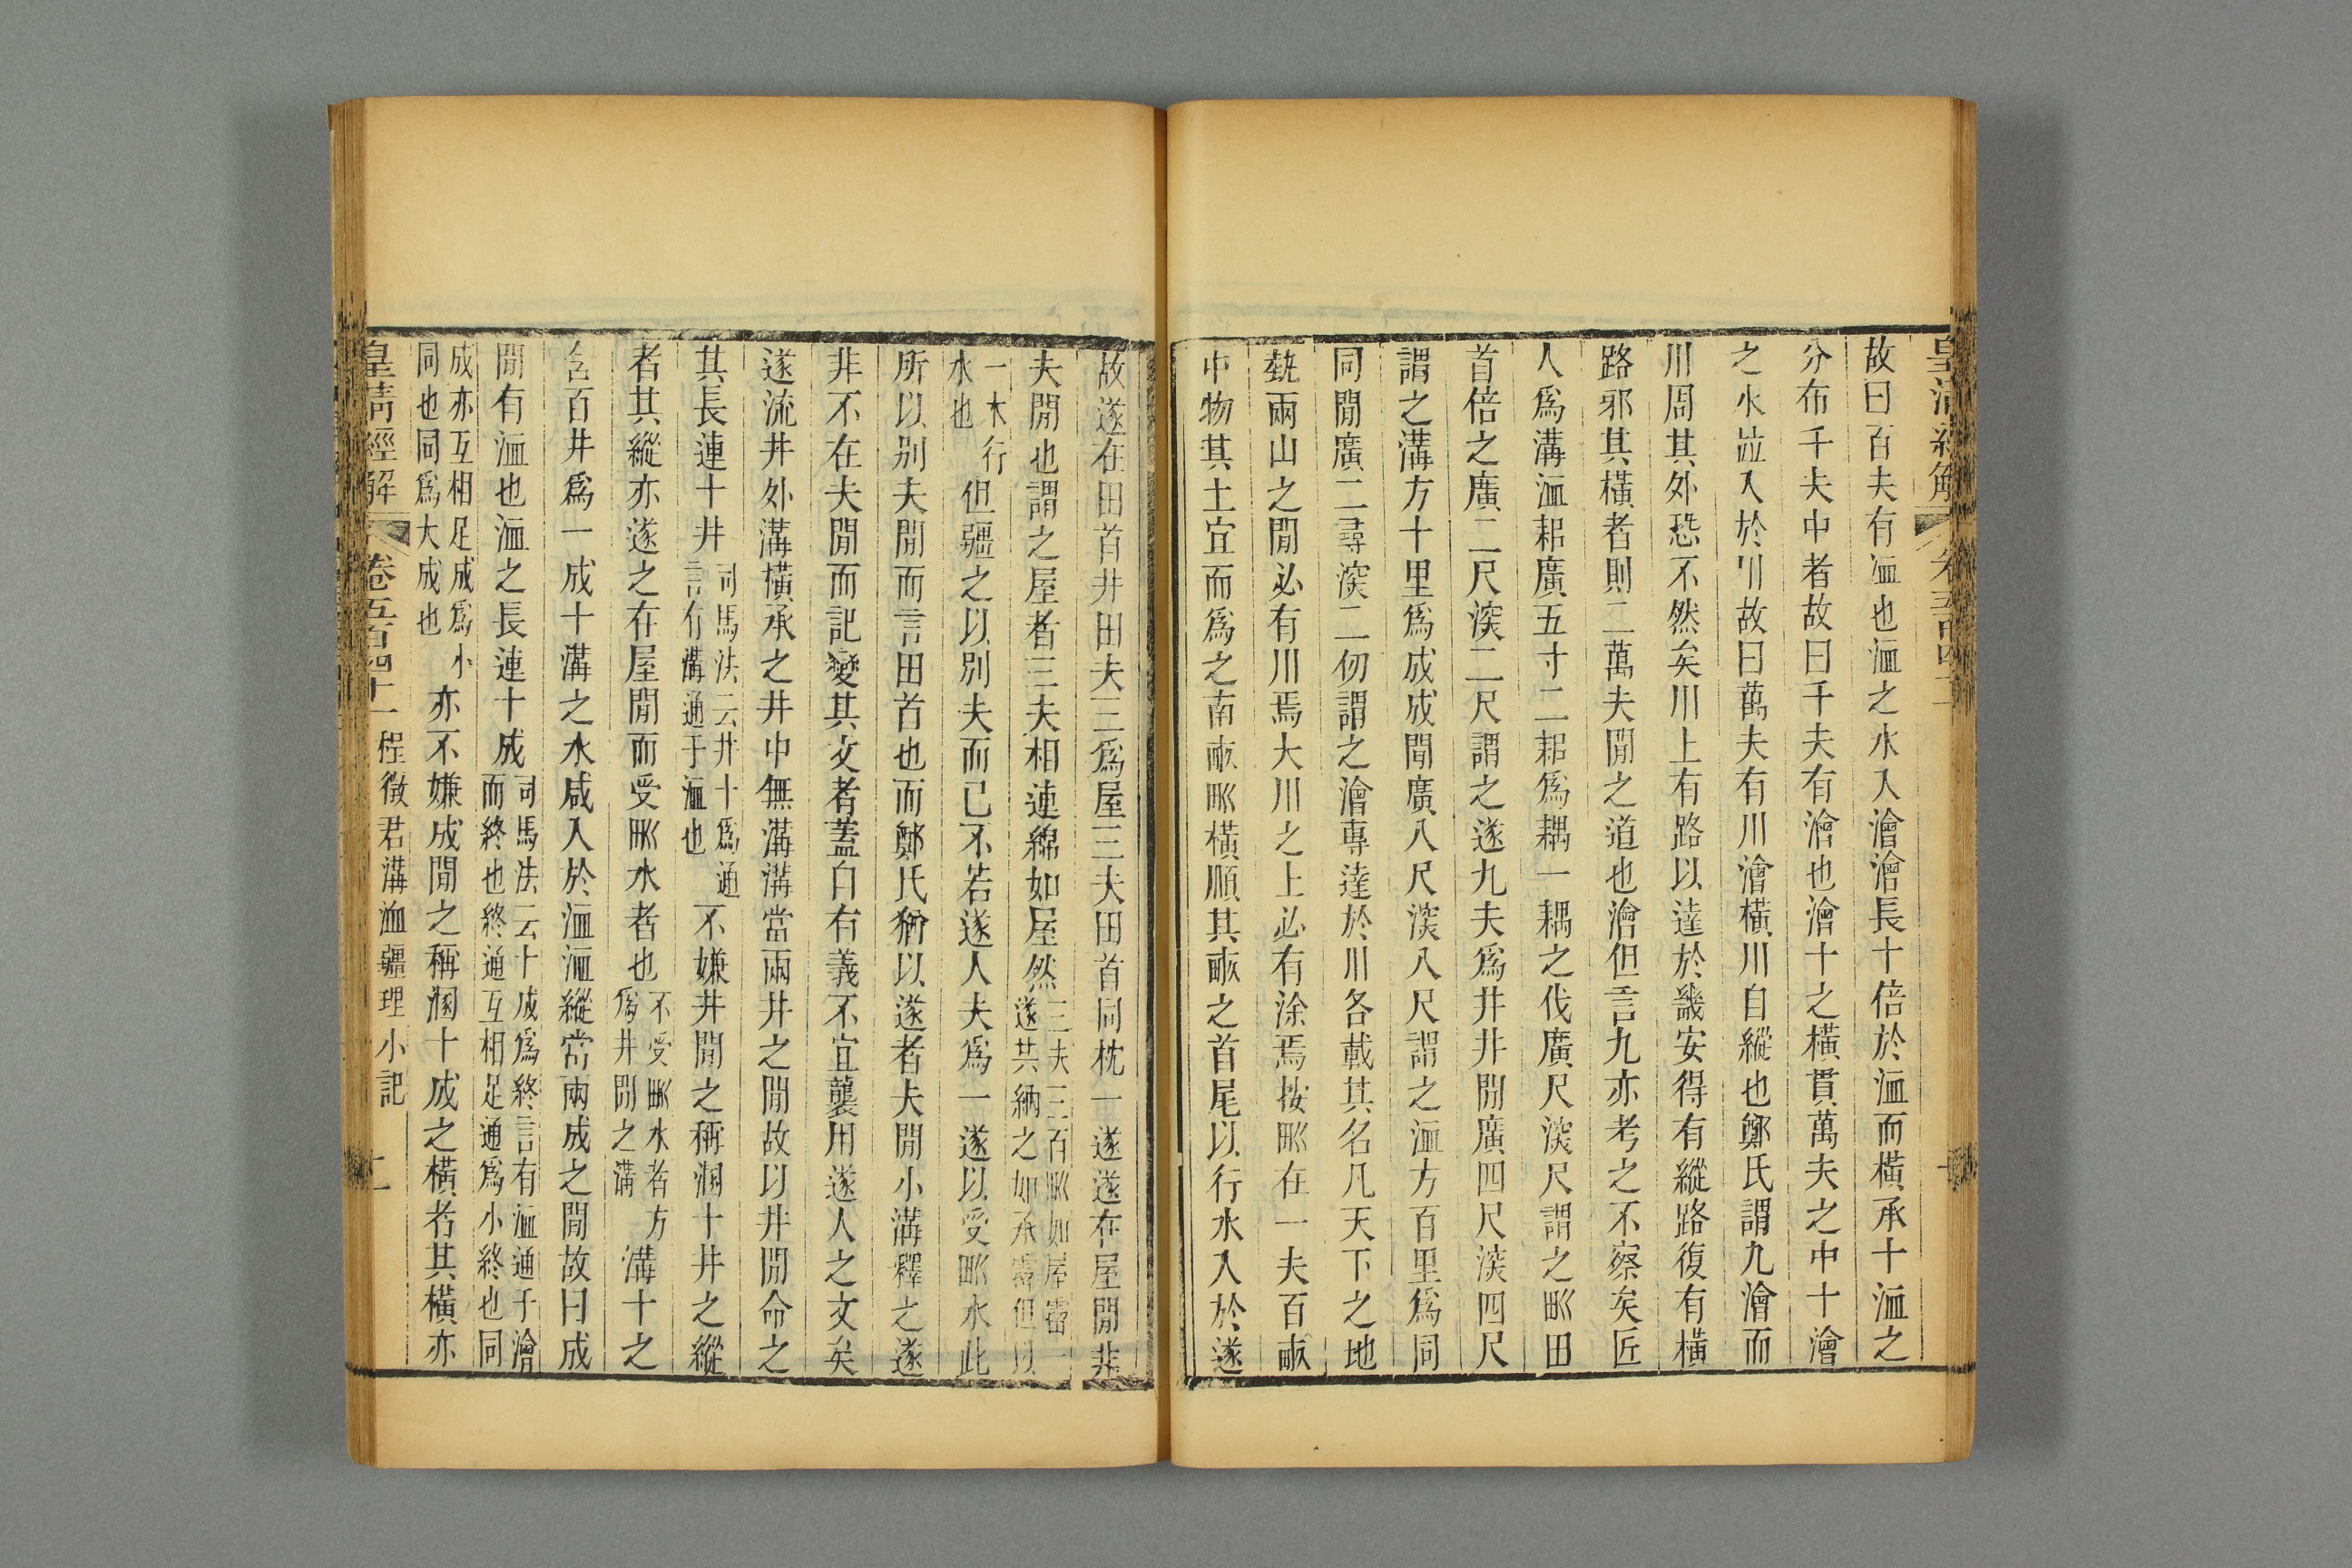 皇清經解 卷五百四十一
故曰百夫有洫也洫之水入澮澮長十倍於洫而橫承十洫之
分布千夫中者故曰千夫有澮也澮十之橫貫萬夫之中十澮
之水竝入於川故曰萬夫有川澮橫川自縱也鄭氏謂九澮而
川周其外恐不然矣川上有路以達於畿安得有縱路復有橫
路邪其橫者則二萬夫閒之道也澮但言九亦考之不察矣匠
人爲溝洫耜廣五寸二耜爲耦一耦之伐廣尺㴱尺謂之𤰕田
首倍之廣二尺㴱二尺謂之遂九夫爲井井閒廣四尺㴱四尺
謂之溝方十里爲成成閒廣八尺㴱八尺謂之洫方百里爲同
同閒廣二尋㴱二仞謂之澮專達於川各載其名凡天下之地
埶兩山之閒必有川焉大川之上必有涂焉按𤰕在一夫百畝
中物其土宜而爲之南畝𤰕橫順其畝之首尾以行水入於遂
故遂在田首井田夫三爲屋三夫田首同枕一遂遂在屋閒非
夫閒也謂之屋者三夫相連綿如屋然三夫三百𤰕如屋霤一
遂其納之如承霤但以
一木行
水也但疆之以別夫而已不若遂人夫爲一遂以受𤰕水此
所以別夫閒而言田首也而鄭氏猶以遂者夫閒小溝釋之遂
非不在夫閒而記變其文者蓋自有義不宜襲用遂人之文矣
遂流井外溝橫承之井中無溝溝當兩井之閒故以井閒命之
其長連十井司馬法云井十爲通
言有溝通于洫也不嫌井閒之稱溷十井之縱
者其縱亦遂之在屋閒而受𤰕水者也不受𤰕水者方
爲井閒之溝溝十之
含百井爲一成十溝之水咸入於洫洫縱當兩成之閒故曰成
閒有洫也洫之長連十成司馬法云十成爲終言有洫通于澮
而終也終通互相足通爲小終也同
成亦互相足成爲小
同也同爲大成也亦不嫌成閒之稱溷十成之橫者其橫亦
皇清經解 卷五百四十一 程徵君溝洫疆理小記 二